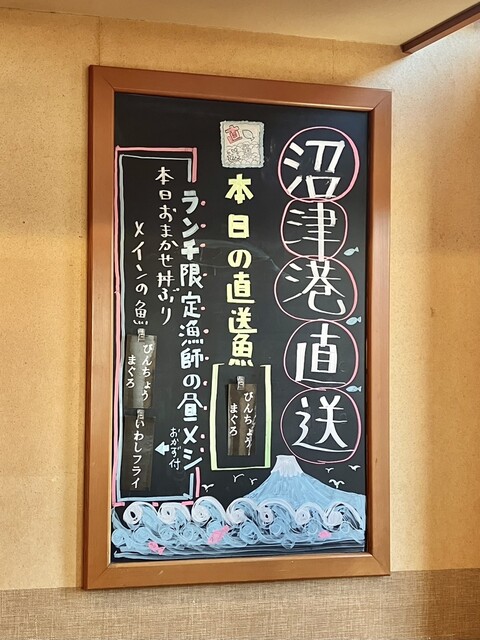 沼津港直送
本日の直送魚
びんちょう
まぐろ
ランチ限定漁師の昼メシ
おかず付
本日おまかせ丼ぶり
メインの魚
びんちょう
まぐろ
いわしフライ